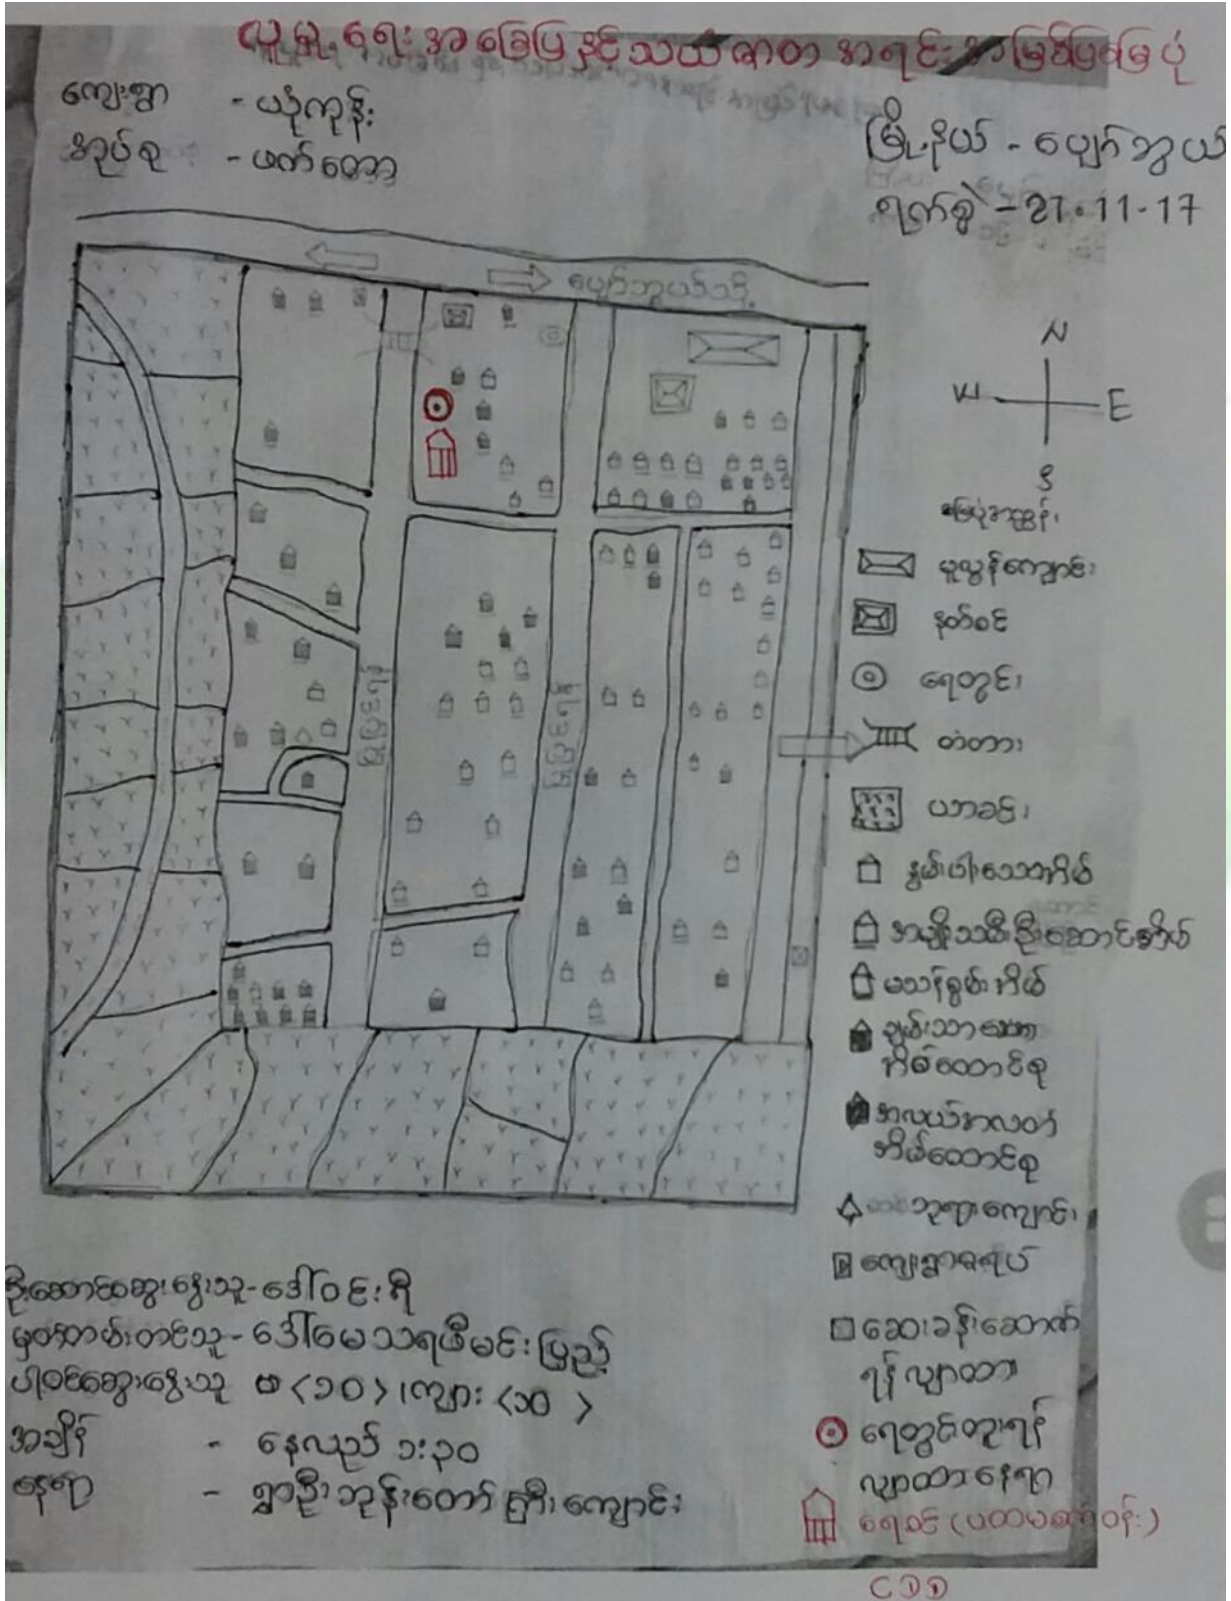 လူမှုရေးအခြေပြနှင့်သယံဇာတအရင်းအမြစ်ပြမြေပုံ
ကျေးရွာ - ယုံကုန်း
အုပ်စု - ဖက်တော
မြို့နယ် - ပျော်ဘွယ်
ရက်စွဲ - 21.11.17
ပျော်ဘွယ်သို့
N
W
E
S
မြေပုံအညွှန်း
မူလွန်ကျောင်း
နတ်စင်
ရေတွင်း
တံတား
ယာခင်း
နွမ်းပါးသောအိမ်
အမျိုးသမီးဦးဆောင်အိမ်
မသန်စွမ်းအိမ်
ချမ်းသာသော
အိမ်ထောင်စု
အလယ်အလတ်
အိမ်ထောင်စု
ဘုရားကျောင်း
ကျေးရွာဓရပ်
ဆေးခန်းဆောက်
ရန်လျာထား
ရေတွင်းတူးရန်
လျာထားနေရာ
ရေစင် (ပထမစက်ဝန်း)
CDD
ဦးဆောင်ဆွေးနွေးသူ - ဒေါ်ဝင်းရီ
မှတ်တမ်းတင်သူ - ဒေါ်မေသရဖီမင်းပြည့်
ပါဝင်ဆွေးနွေးသူ မ <၁၀> ၊ ကျား <၁၀>
အချိန် - နေ့လည် ၁:၃၀
နေရာ - ရွာဦးဘုန်းတော်ကြီးကျောင်း